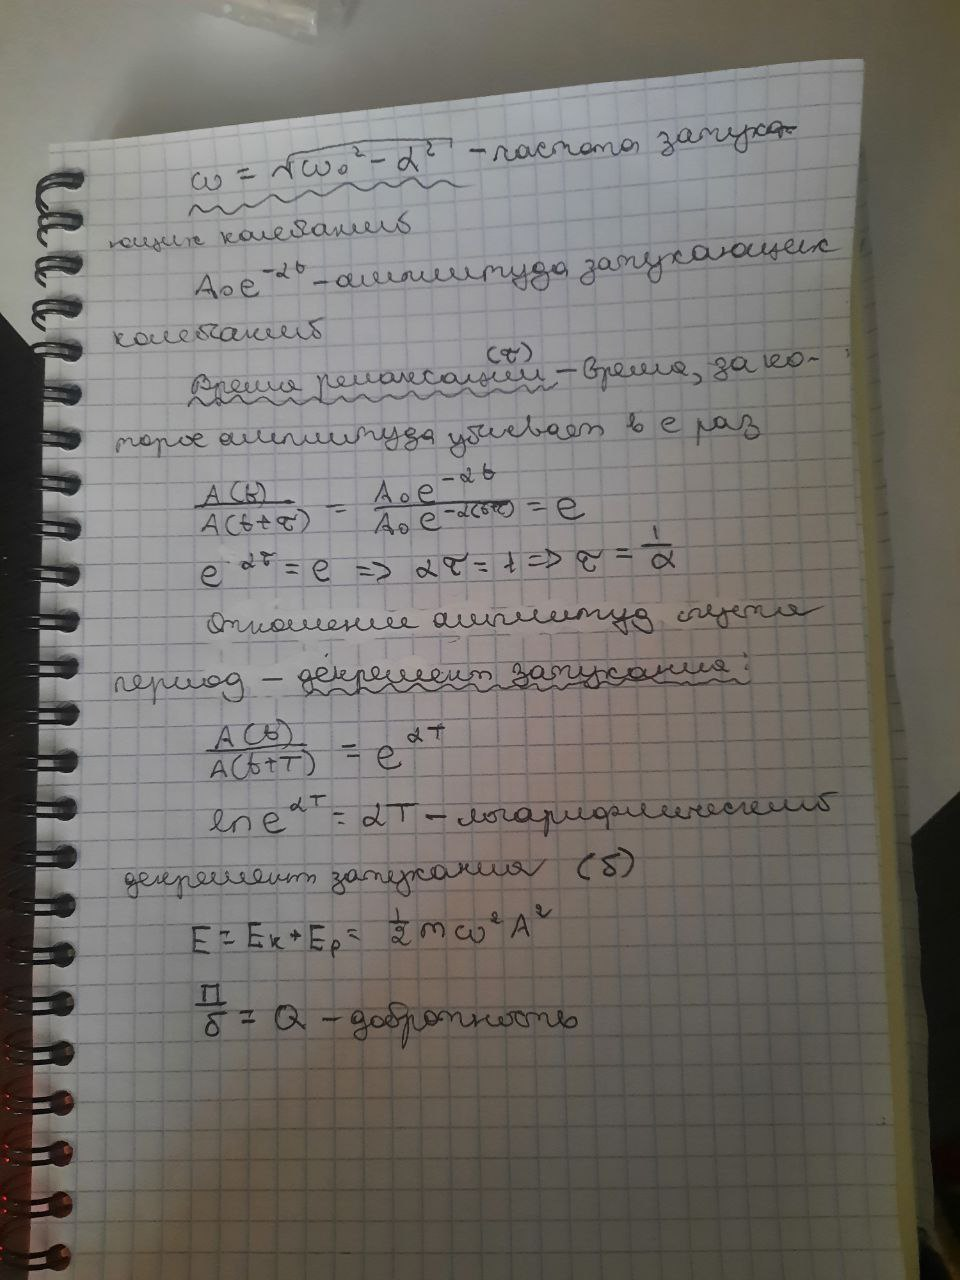 ω = √ω₀² - α² - частота затуха-
ющих колебаний
A₀e^-αt - амплитуда затухающих
колебаний
Время релаксации (τ) - время, за ко-
торое амплитуда убывает в e раз
A(t)/A(t+τ) = A₀e^-αt/A₀e^-α(t+τ) = e
e^ατ = e => ατ = 1 => τ = 1/α
Отношение амплитуд спустя
период - декремент затухания:
A(t)/A(t+T) = e^αT
ln e^αT = αT - логарифмический
декремент затухания (δ)
E = Eк + Ep = 1/2 mω²A²
П/δ = Q - добротность